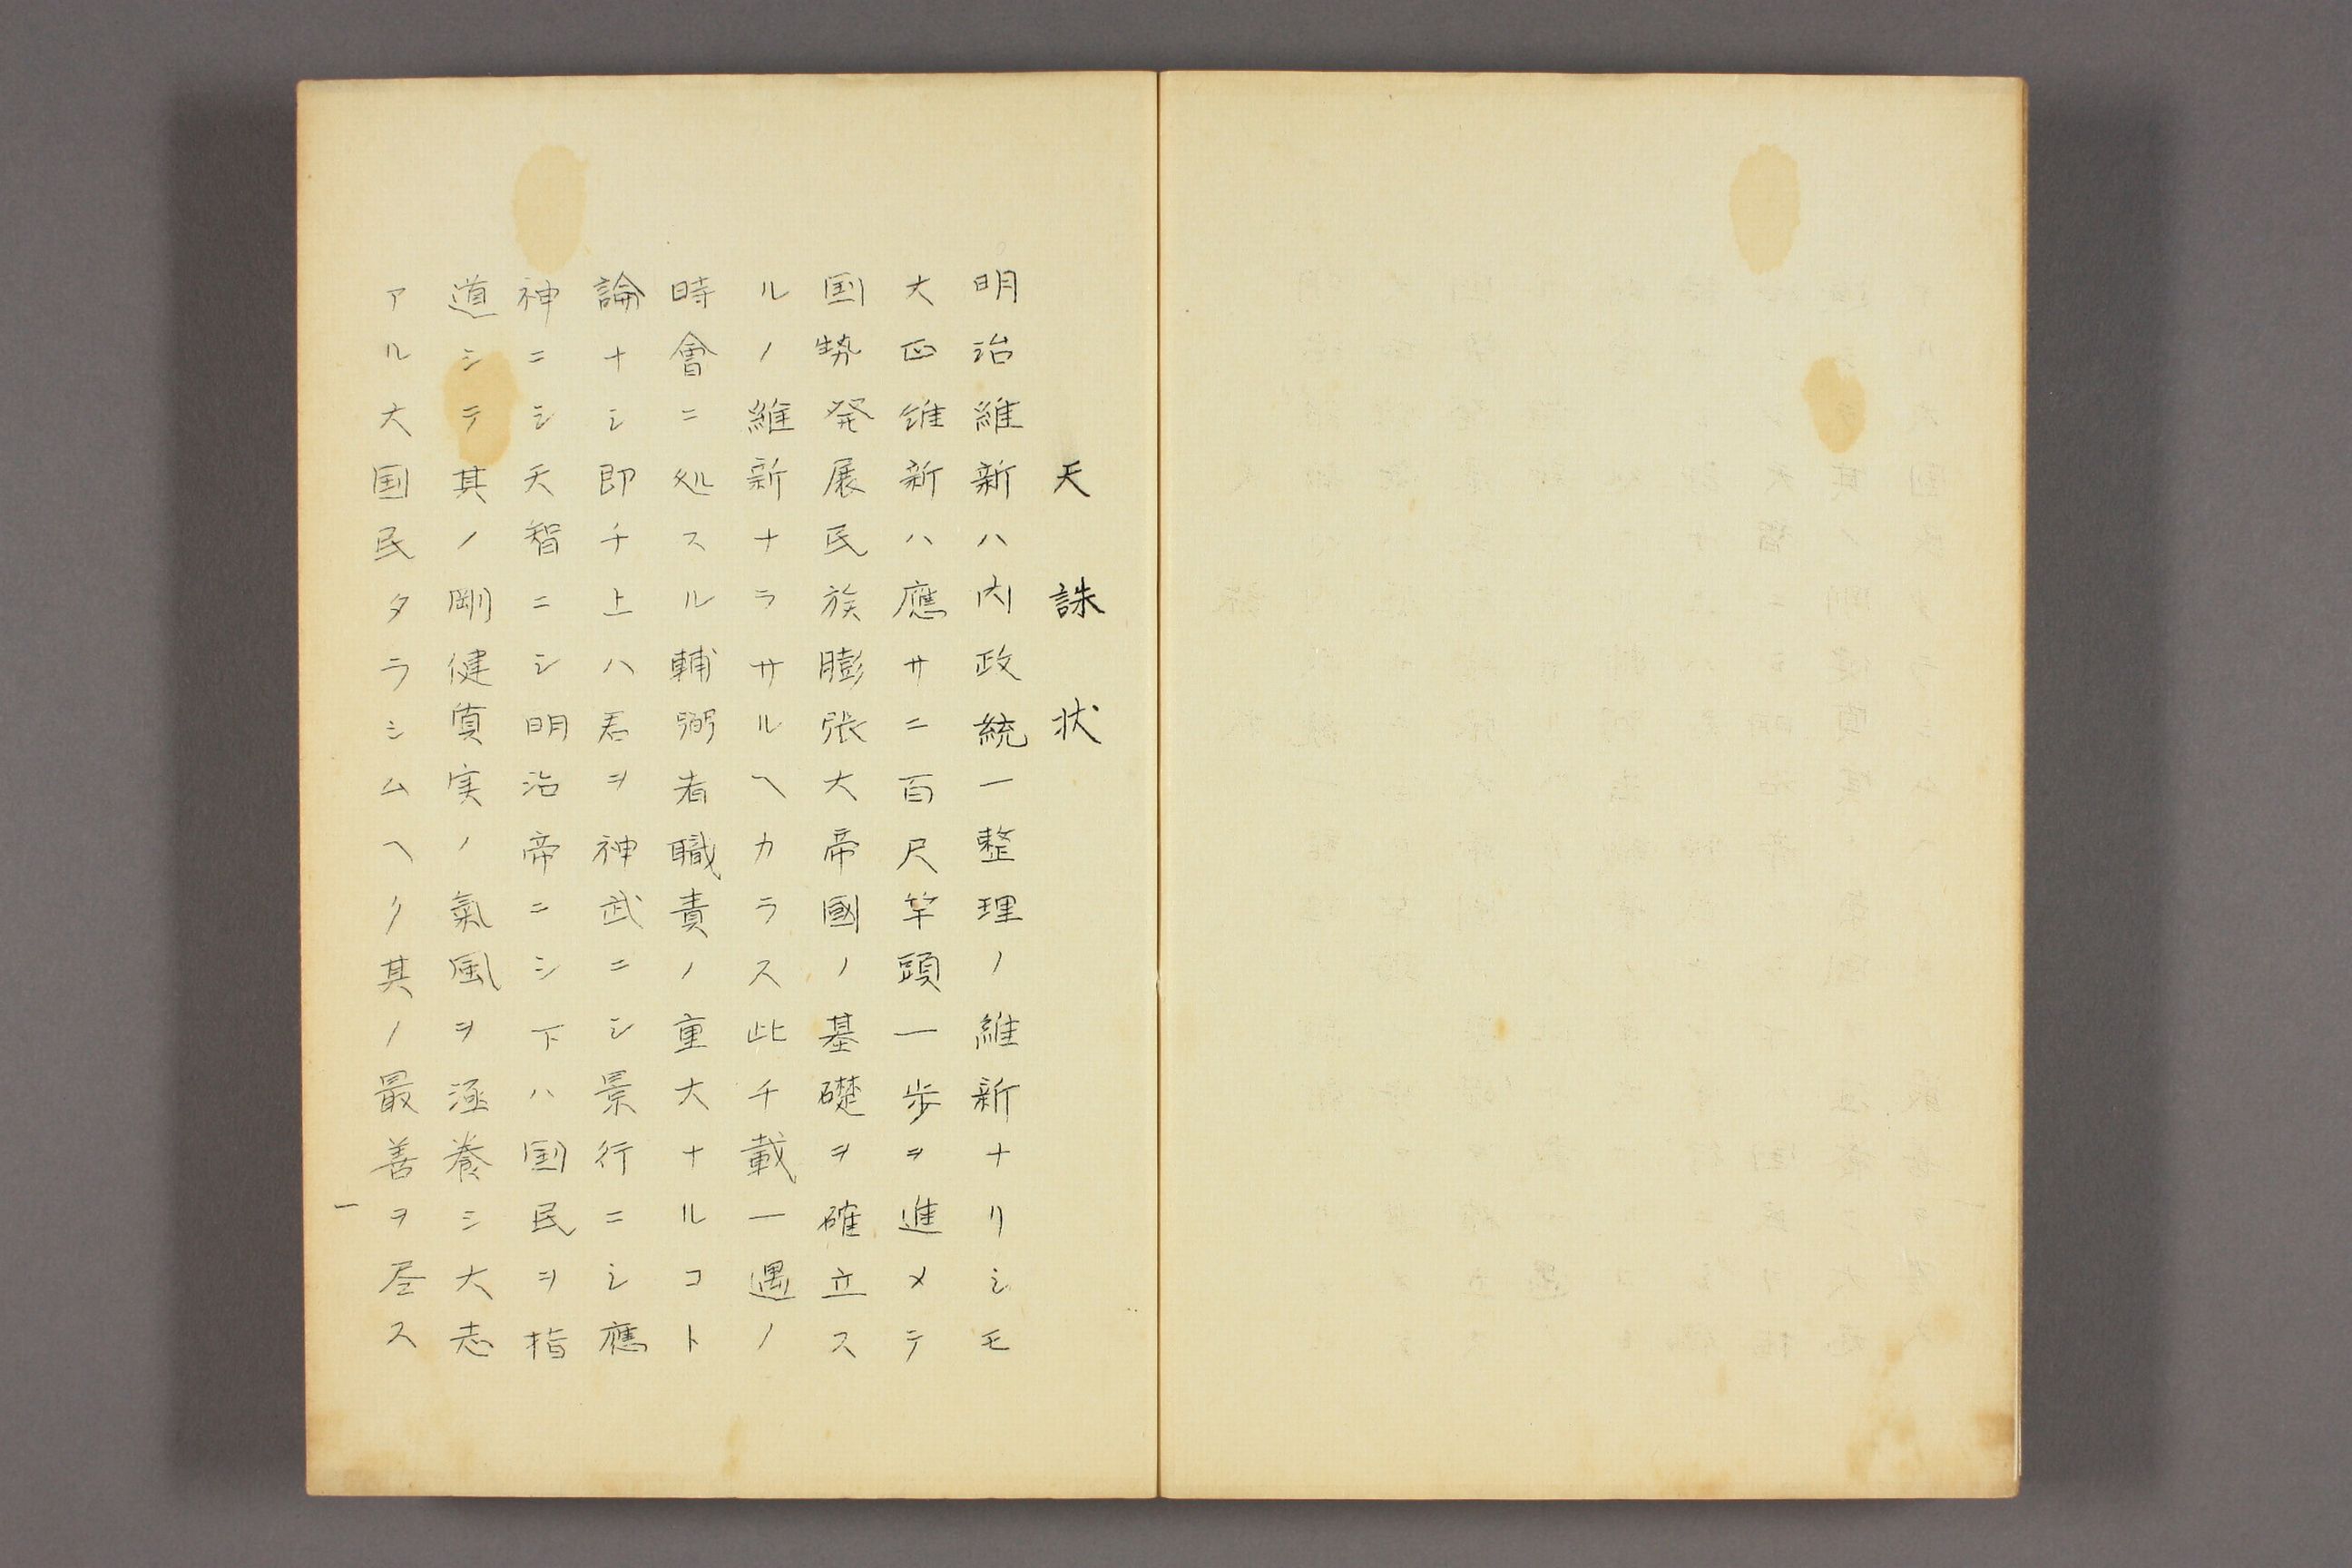 天誅状
明治維新ハ内政統一整理ノ維新ナリシモ
大正維新ハ應サニ百尺竿頭一歩ヲ進メテ
国勢発展民族膨張大帝國ノ基礎ヲ確立ス
ルノ維新ナラサルヘカラス此千載一遇ノ
時會ニ処スル輔弼者職責ノ重大ナルコト
論ナシ即チ上ハ君ヲ神武ニシ景行ニシ應
神ニシ天智ニシ明治帝ニシ下ハ国民ヲ指
道シテ其ノ剛健質実ノ氣風ヲ涵養シ大志
アル大国民タラシムヘク其ノ最善ヲ尽ス
一